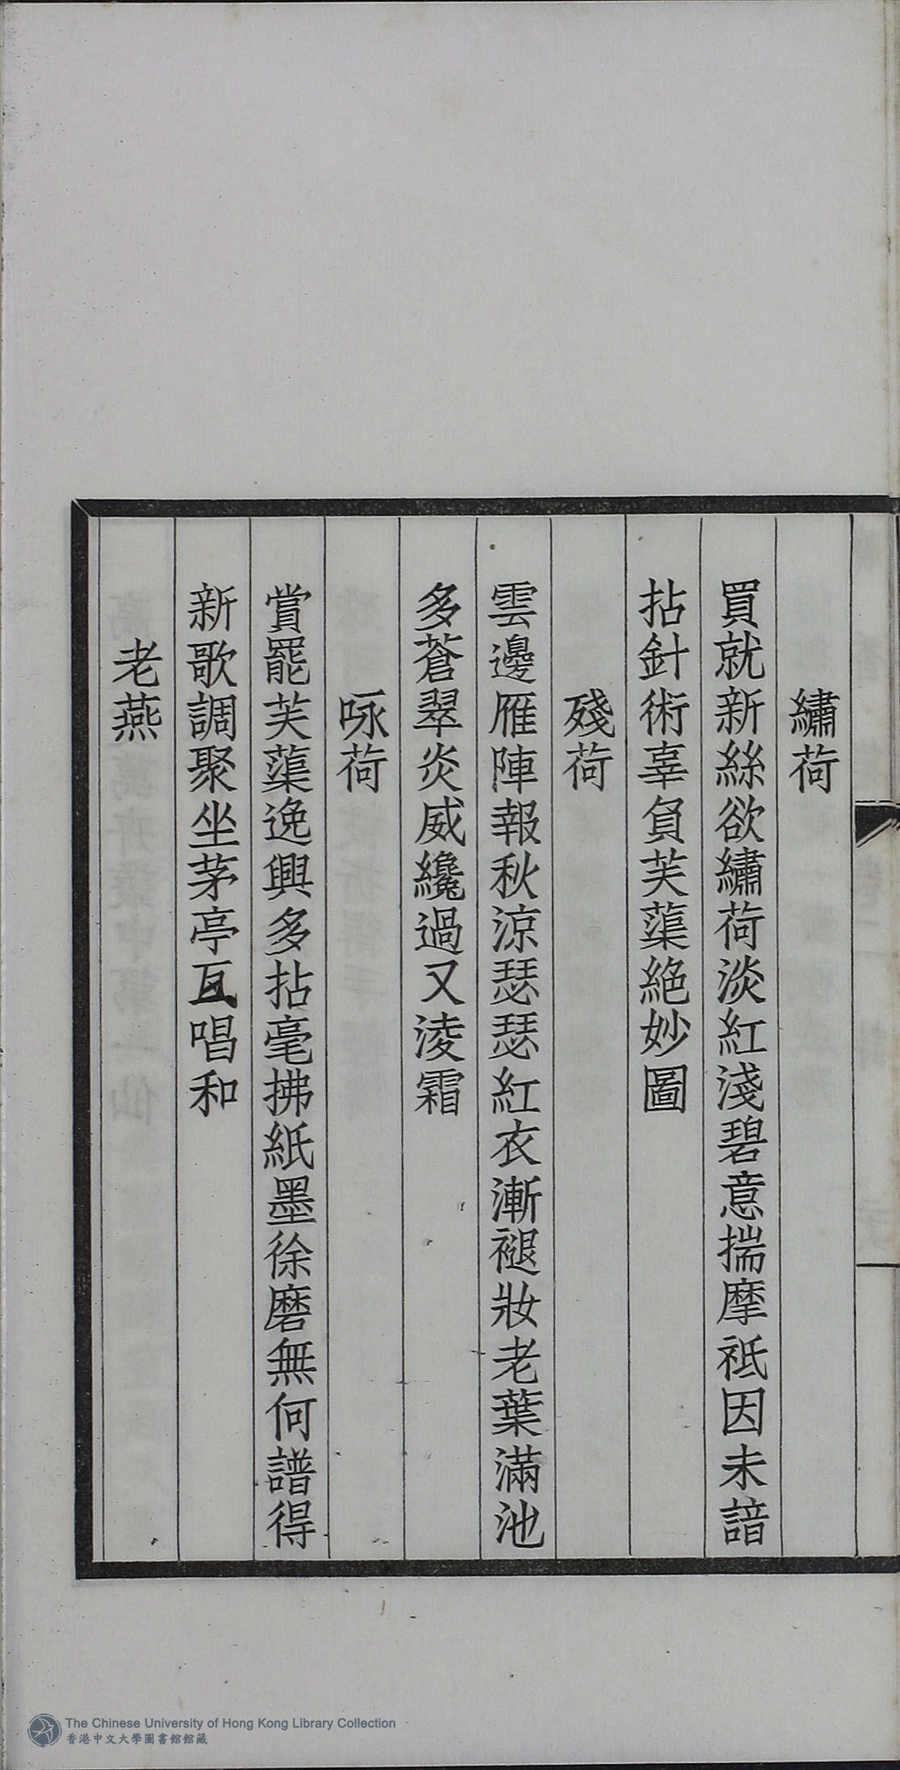 繡荷
買就新絲欲繡荷淡紅淺碧意揣摩祗因未諳
拈針術辜負芙蕖絶妙圖
殘荷
雲邊雁陣報秋涼瑟瑟紅衣漸褪妝老葉滿池
多蒼翠炎威纔過又淩霜
咏荷
賞罷芙蕖逸興多拈毫拂紙墨徐磨無何譜得
新歌調聚坐茅亭互唱和
老燕
The Chinese University of Hong Kong Library Collection
香港中文大學圖書館館藏